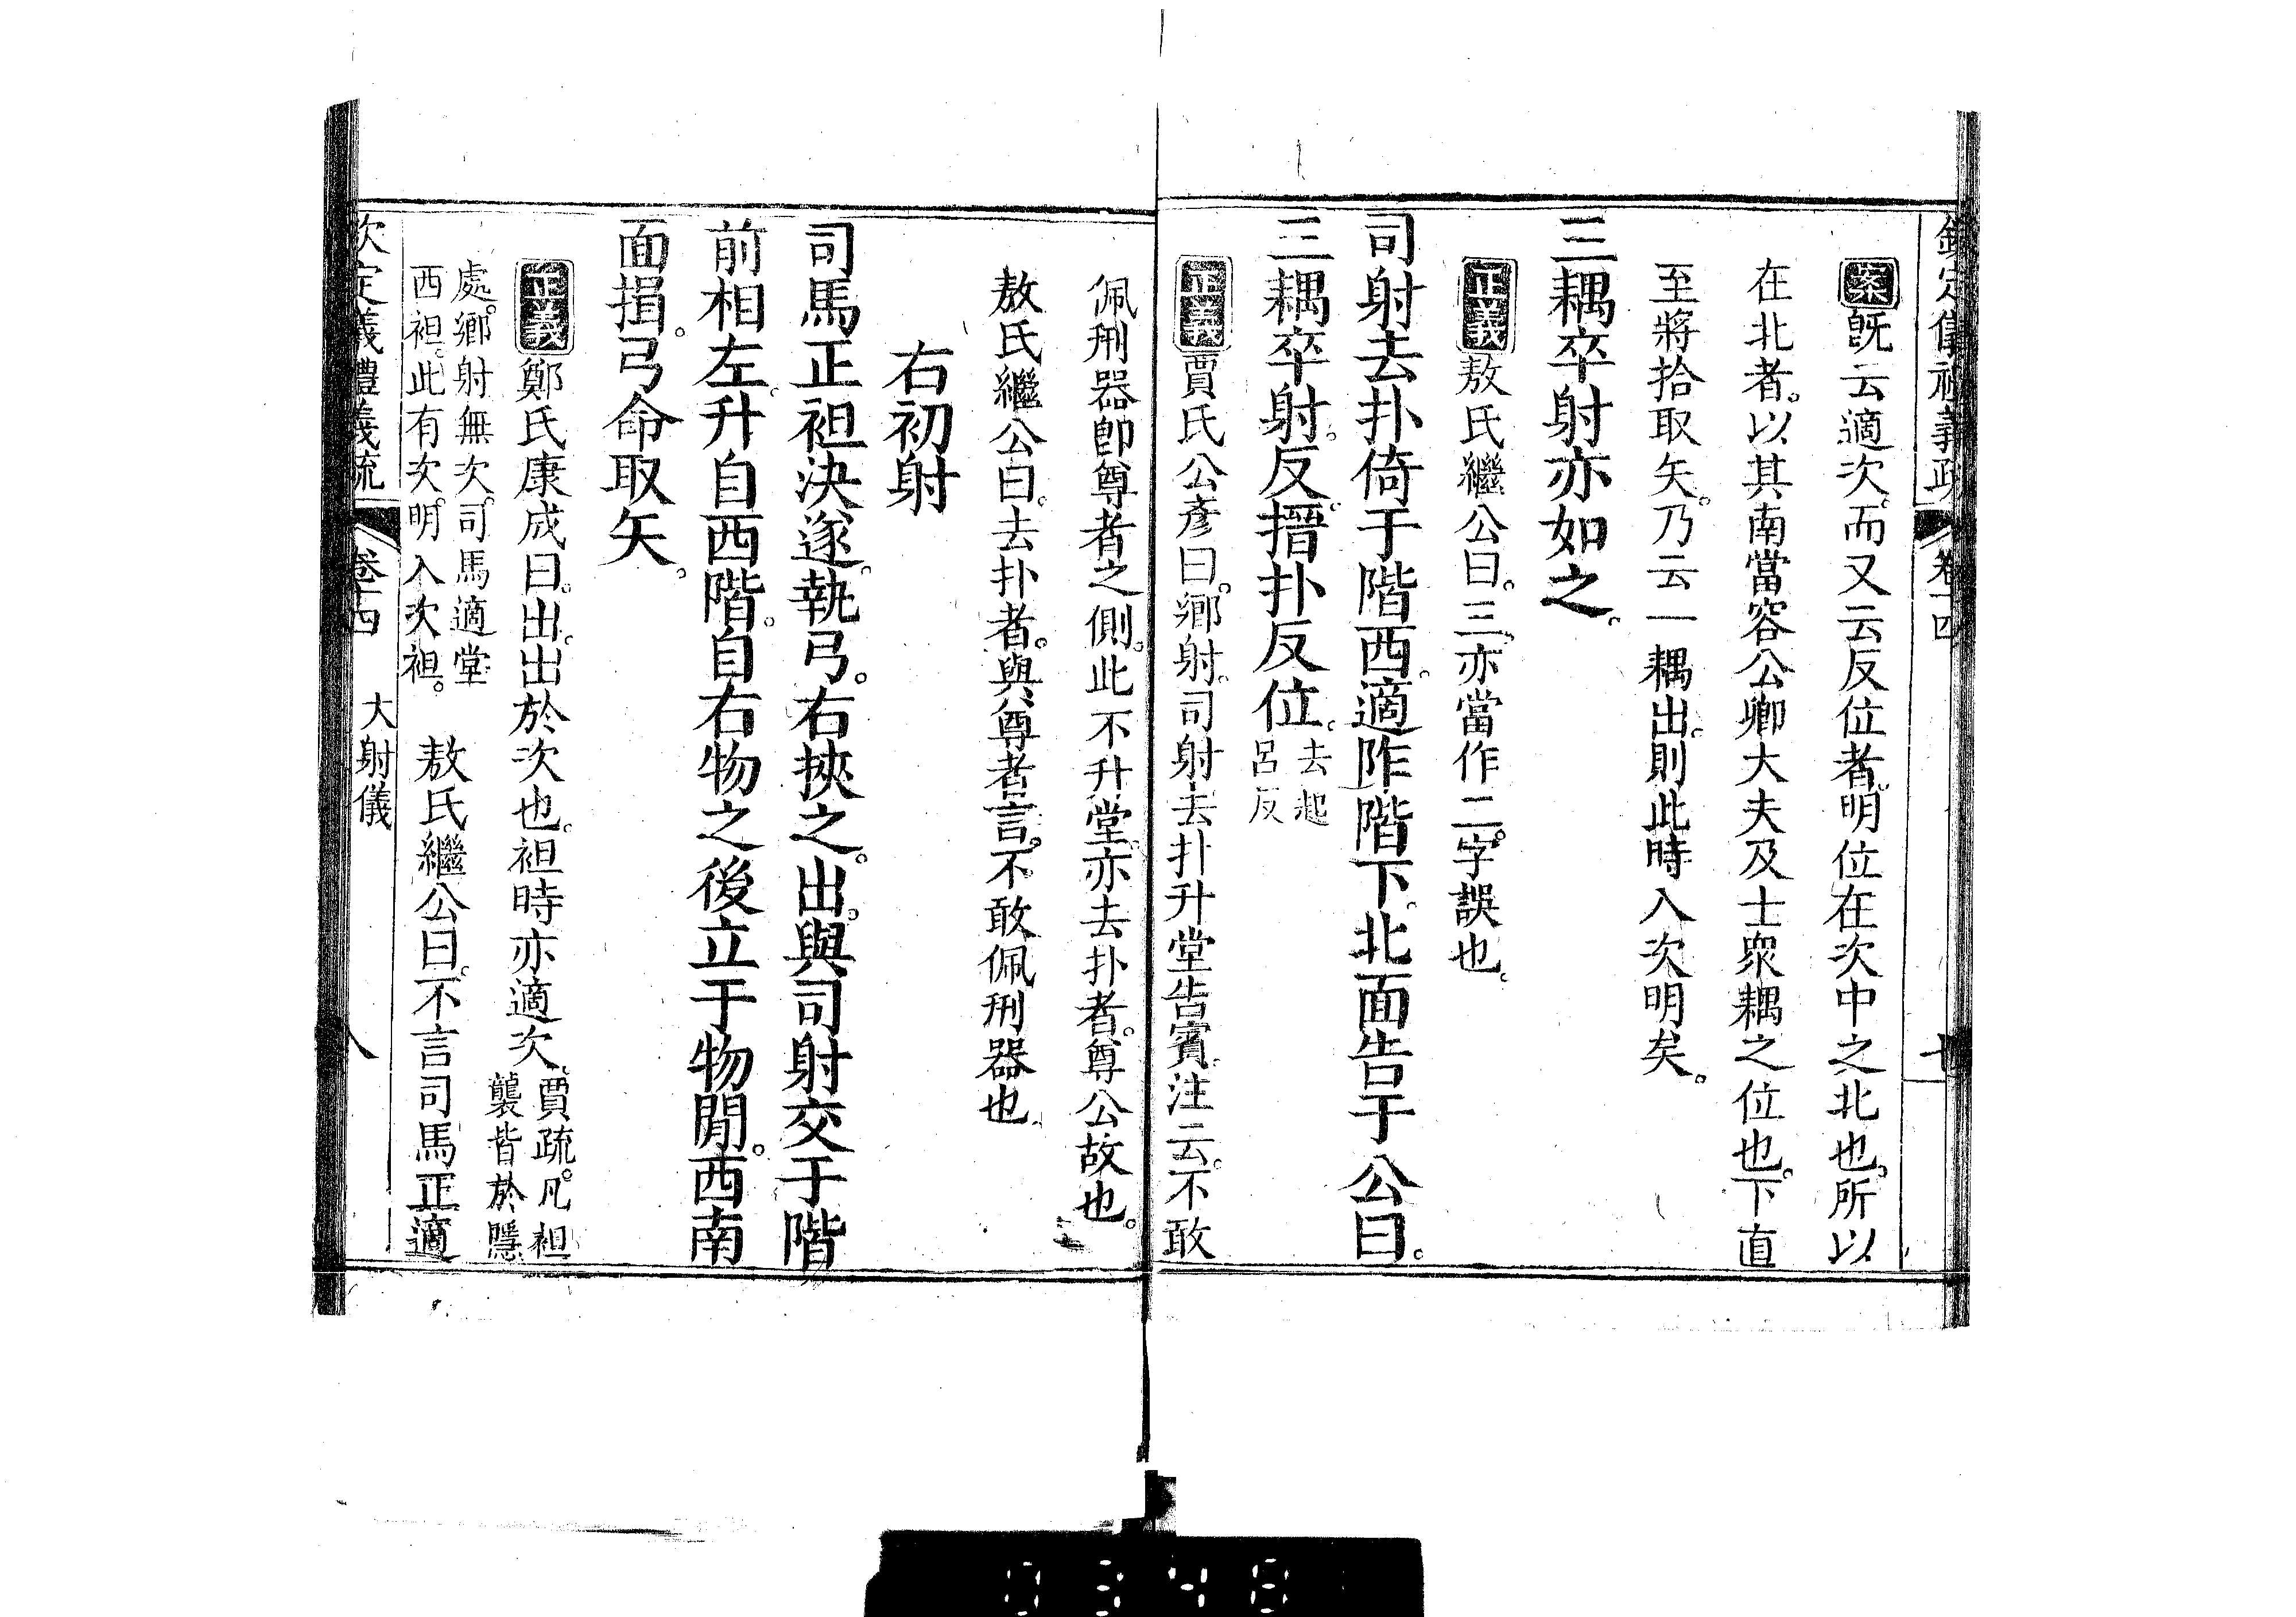 欽定儀禮義疏 卷十四 七
案 旣云適次。而又云反位者。明位在次中之北也。所以
在北者。以其南當容公卿大夫及士衆耦之位也。下直
至將拾取矢。乃云一耦出。則此時入次明矣。
三耦卒射亦如之。
正義 敖氏繼公曰。三。亦當作二。字誤也。
司射去扑倚于階西。適阼階下。北面告于公曰。
三耦卒射。反。搢扑反位。去起呂反
正義 賈氏公彥曰。鄉射。司射去扑升堂告賓。注云。不敢
佩刑器卽尊者之側。此不升堂。亦去扑者。尊公故也。
敖氏繼公曰。去扑者。與尊者言。不敢佩刑器也。
右初射
司馬正袒決遂。執弓。右挾之。出。與司射交于階
前相左。升自西階。自右物之後立于物閒。西南
面揖。弓命取矢。
正義 鄭氏康成曰。出。出於次也。袒時亦適次。賈疏。凡袒襲皆於隱
處。鄉射無次。司馬適堂西袒。此有次。明入次袒。 敖氏繼公曰。不言司馬正適
欽定儀禮義疏 卷十四 大射儀 八
0348